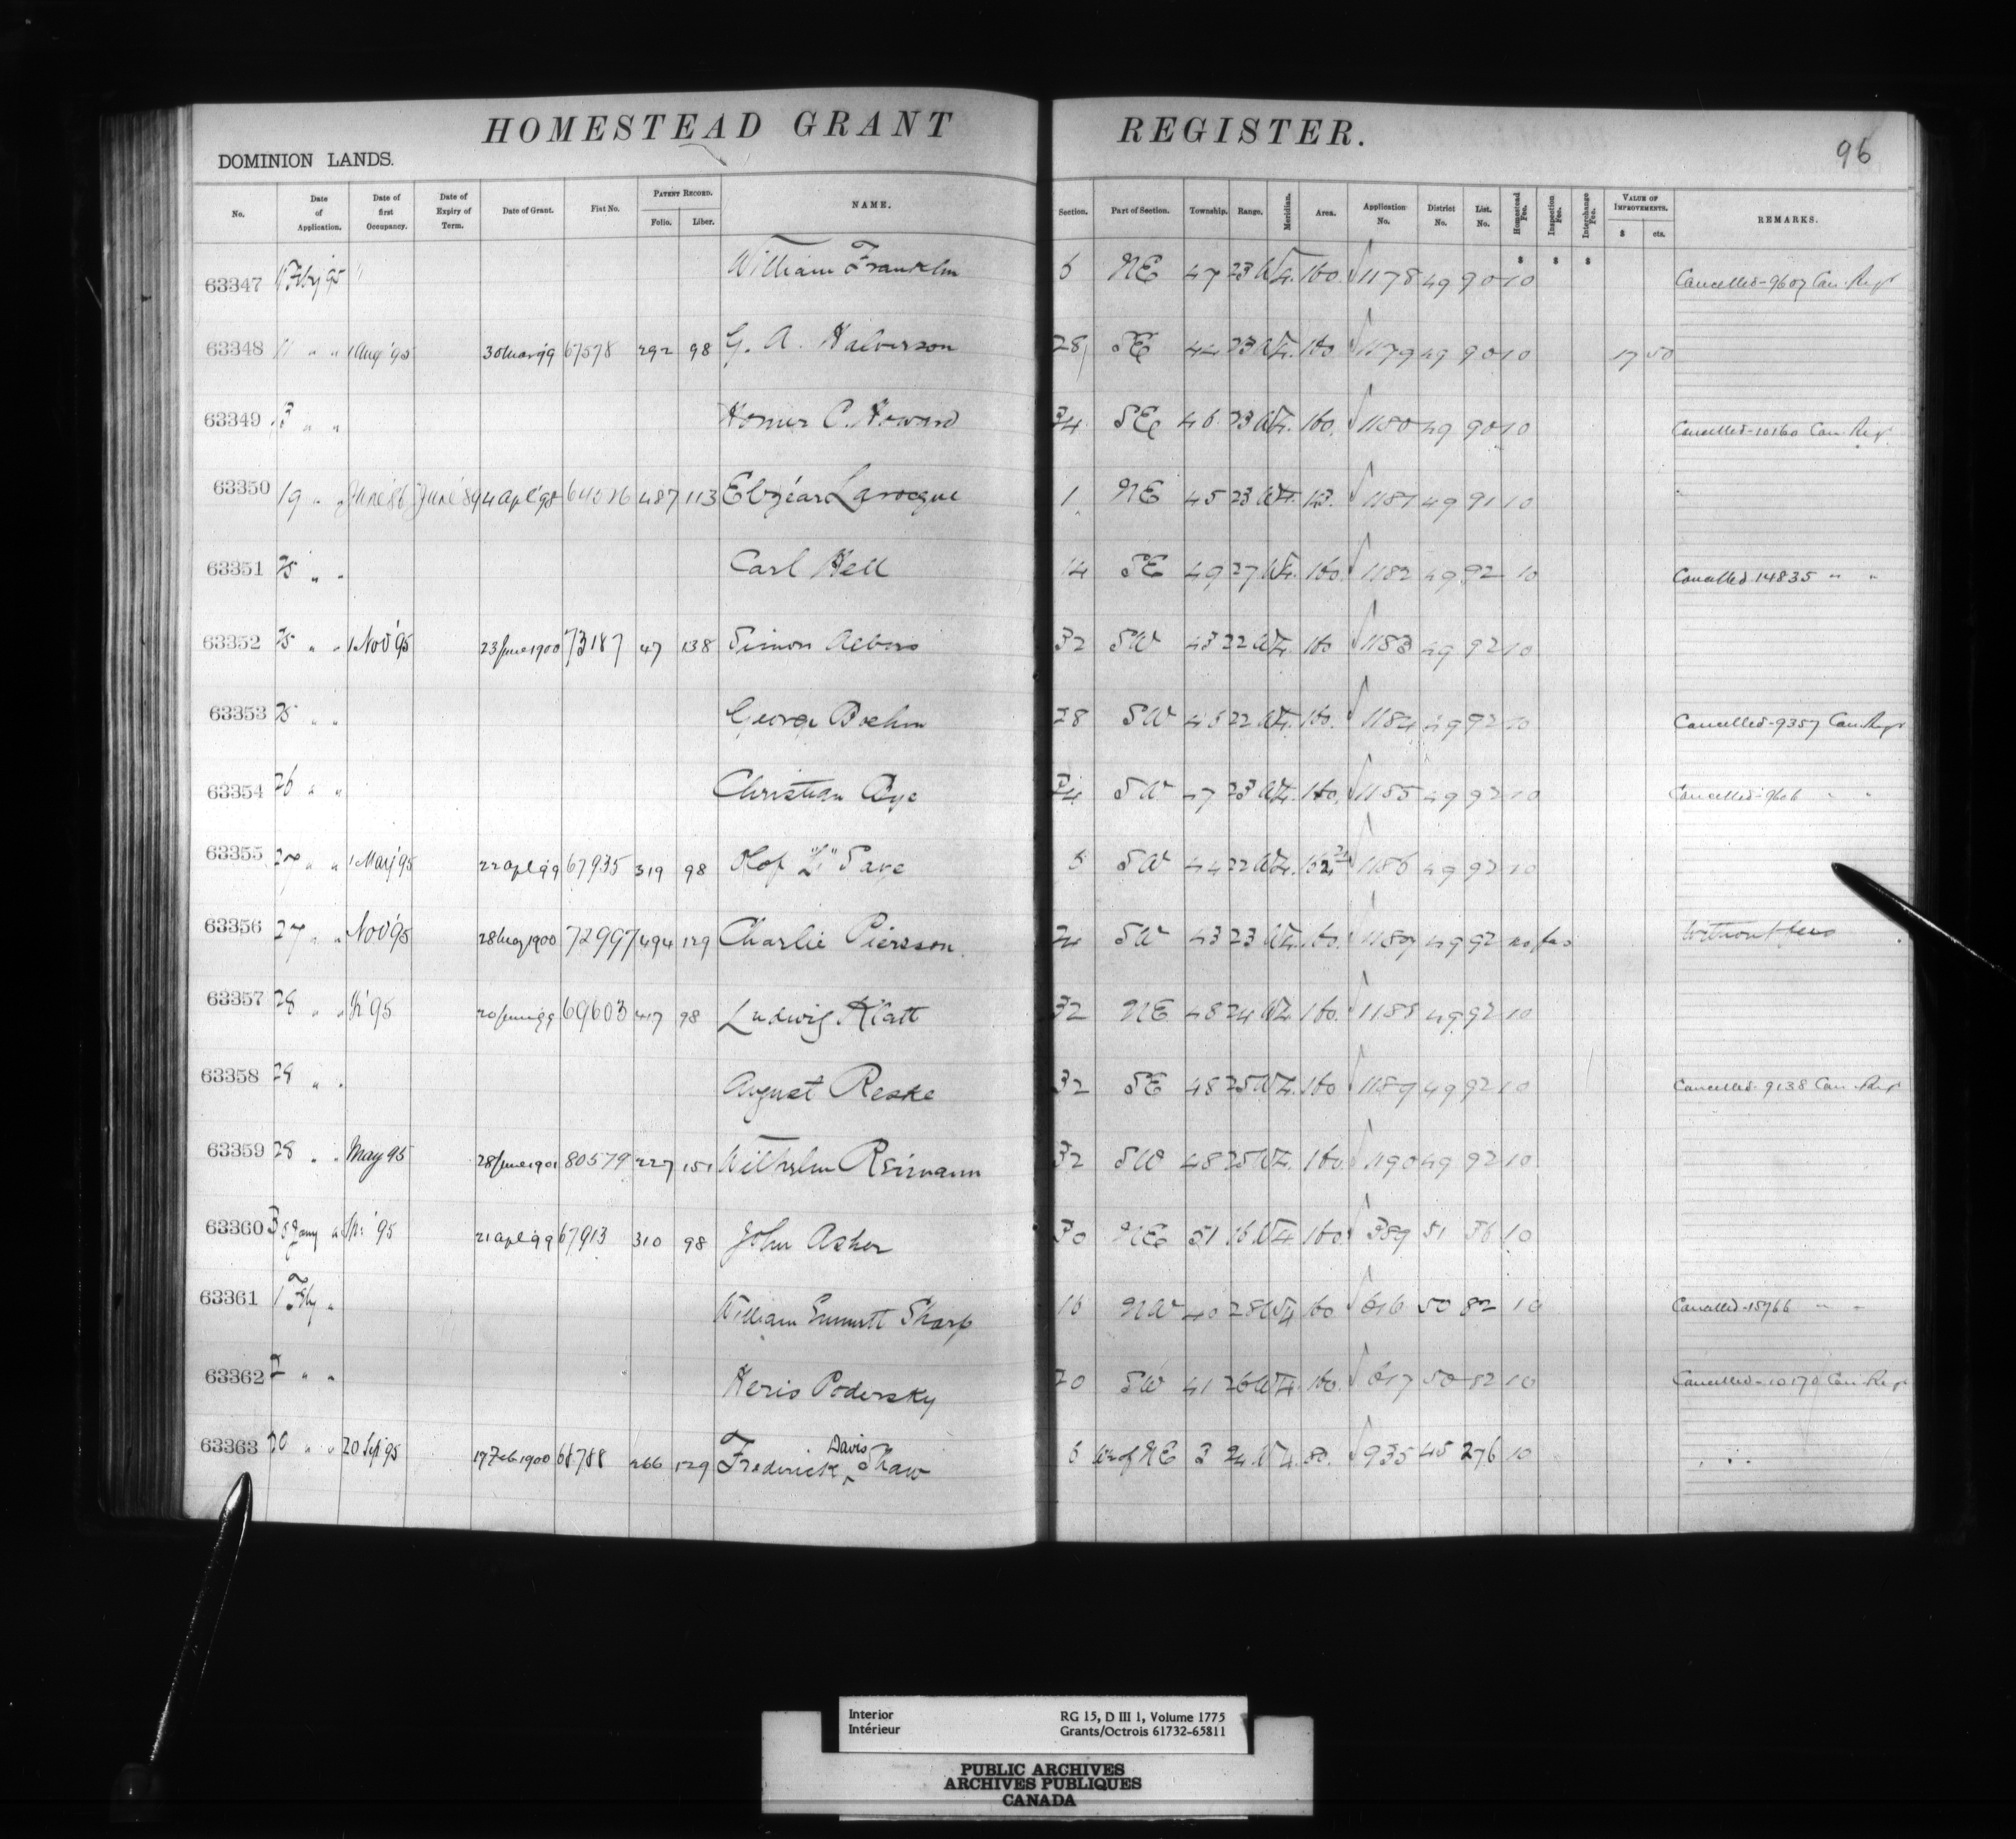 HOMESTEAD GRANT REGISTER.
96
DOMINION LANDS.
No. Date of Application. Date of first Occupancy. Date of Expiry of Term. Date of Grant. Fiat No. PATENT RECORD. Folio. Liber. NAME. Section. Part of Section. Township. Range. Meridian. Area. Application No. District No. List. No. Homestead Fee. Inspection Fee. Interchange Fee. VALUE OF IMPROVEMENTS. $ cts. REMARKS.
$ $ $
63347 11 Feby '95 William Franklin 6 NE 47 23 W4. 160. 1178 49 90 10 Cancelled-9607 Can. Regr
63348 11 " " 1 Aug '95 30 Mar 99 67578 292 98 G. A. Halverson 28 SE 44 23 W4. 160 1179 49 90 10 17 50
63349 13 " " Homer C. Howard 34 SE 46 23 W4. 160. 1180 49 90 10 Cancelled-10160 Can. Regr
63350 19 " " June '86 June '89 4 Apl '98 487 113 Elzéar Larocque 1 NE 45 23 W4. 1181 49 91 10
63351 25 " " Carl Hell 14 SE 49 27 W4. 160. 1182 49 92 10 Cancelled 14835 " "
63352 25 " " 1 Nov '95 23 June 1900 73187 47 138 Simon 32 SW 43 22 W4. 160 1183 49 92 10
63353 25 " " George Boehm 28 SW 22 W4. 160. 1184 49 92 10 Cancelled-9357 Can. Regr
63354 26 " " Christian 34 SW 47 23 W4. 160. 1185 49 92 10 Cancelled-9606 " "
63355 27 " " 1 May '95 22 Apl 99 67935 319 98 Olof "L" 6 SW 44 22 W4. 1186 49 92 10
63356 27 " " Nov '95 28 May 1900 72997 494 129 Charlie Pierson. 24 SW 43 23 W4. 160. 1187 49 92 no fee Without fees
63357 28 " " '95 20 June 99 69603 417 98 Ludwig Klatt 32 NE 48 24 W4. 160. 1188 49 92 10
63358 28 " " August Reske 32 SE 48 25 W4. 160 1189 49 92 10 Cancelled-9138 Can. Regr
63359 28 " " May 95 28 June 1901 80579 227 151 Wilhelm Reimann 32 SW 48 25 W4. 160. 1190 49 92 10
63360 Jany " '95 21 Apl 99 67913 310 98 John Asher 30 NE 51 16 W4 160. 389 51 36 10
63361 1 Feby " William Emmett Sharp 16 NW 40 28 W4 160 616 50 82 10 Cancelled-15766 " "
63362 2 " " Keris Podersky 20 SW 41 26 W4. 160. 617 50 82 10 Cancelled-10170 Can. Regr
63363 20 " " 20 Sept '95 17 Feb. 1900 68788 266 129 Frederick Davis Shaw 6 W½ of NE 3 24 W4. 80. 935 45 276 10
Interior RG 15, D III 1, Volume 1775
Intérieur Grants/Octrois 61732-65811
PUBLIC ARCHIVES
ARCHIVES PUBLIQUES
CANADA